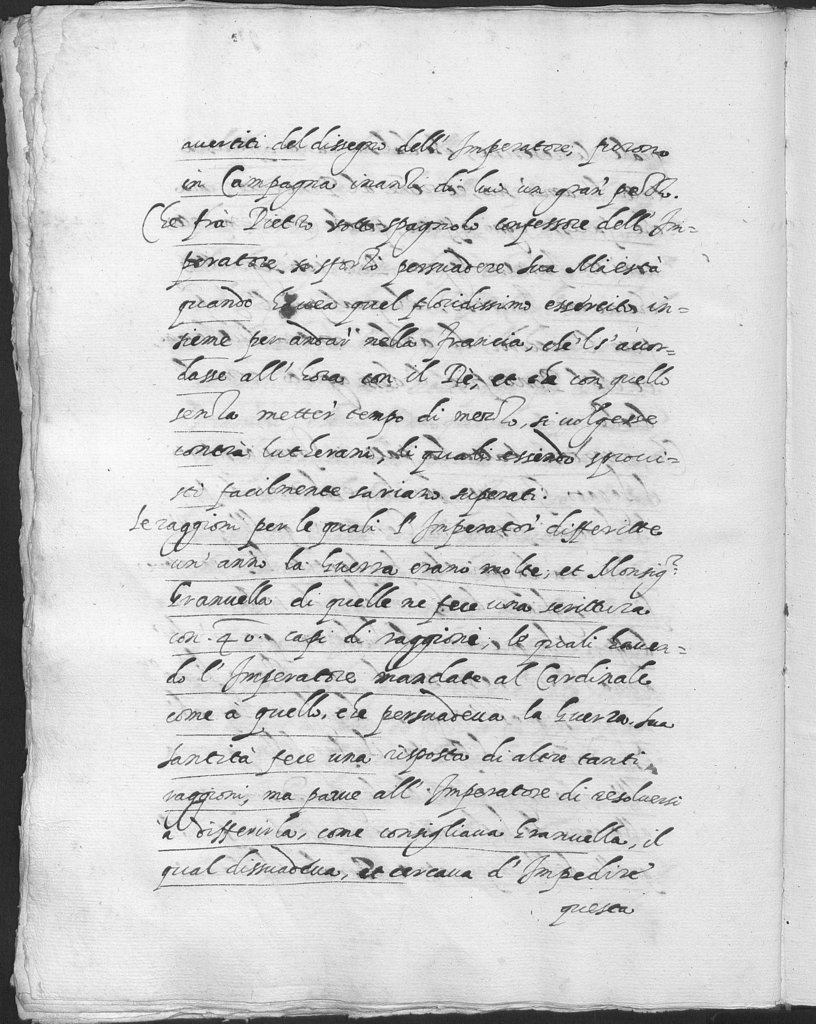 auertiti del dissegno dell' Imperatore, furono
in Campagna inanti di lui un gran pezzo.
Che frà Pietro soto spagnolo confessore dell' Im=
peratore si sforzò persuadere sua Maiestà
quando haueua quel floridissimo essercito in=
sieme per andar' nella Francia, che s'acor=
dasse all' hora con il Rè, et che con quello
senza metter' tempo di mezzo, si volgesse
contra lutherani, li quali essendo sproui=
sti facilmente sariano superati.
Le raggioni per le quali l' Imperator' differitte
un' anno la Guerra erano molte, et Monsig.r
Granuella di quelle ne fece una scrittura
con 40. capi di raggioni, le quali hauen=
do l' Imperatore mandate al Cardinale
come à quello, che persuadeua la Guerra. sua
santità fece una risposta di altre tanti
raggioni, ma parue all' Imperatore di resoluersi
à differirla, come consigliaua Granuella, il
qual dissuadeua, et cercaua d' Impedire
questa